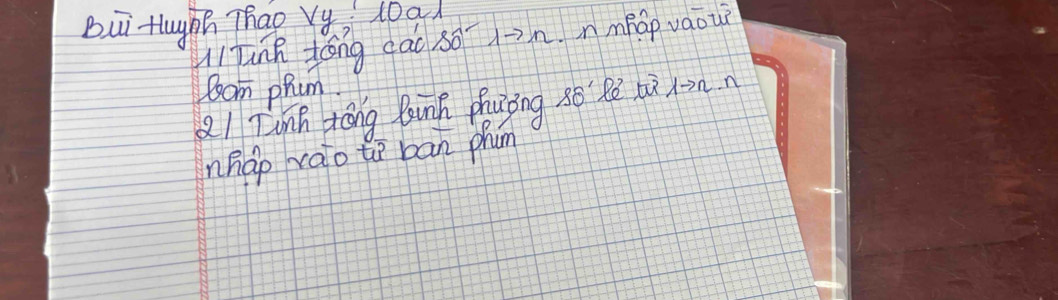 Bùi Huỳnh Thảo Vy: 10a1
1/ Tính tổng các số 1→n. n nhập vào từ
bàn phím.
2/ Tính tổng bình phương số lẻ từ 1→n. n
nhập vào từ bàn phím